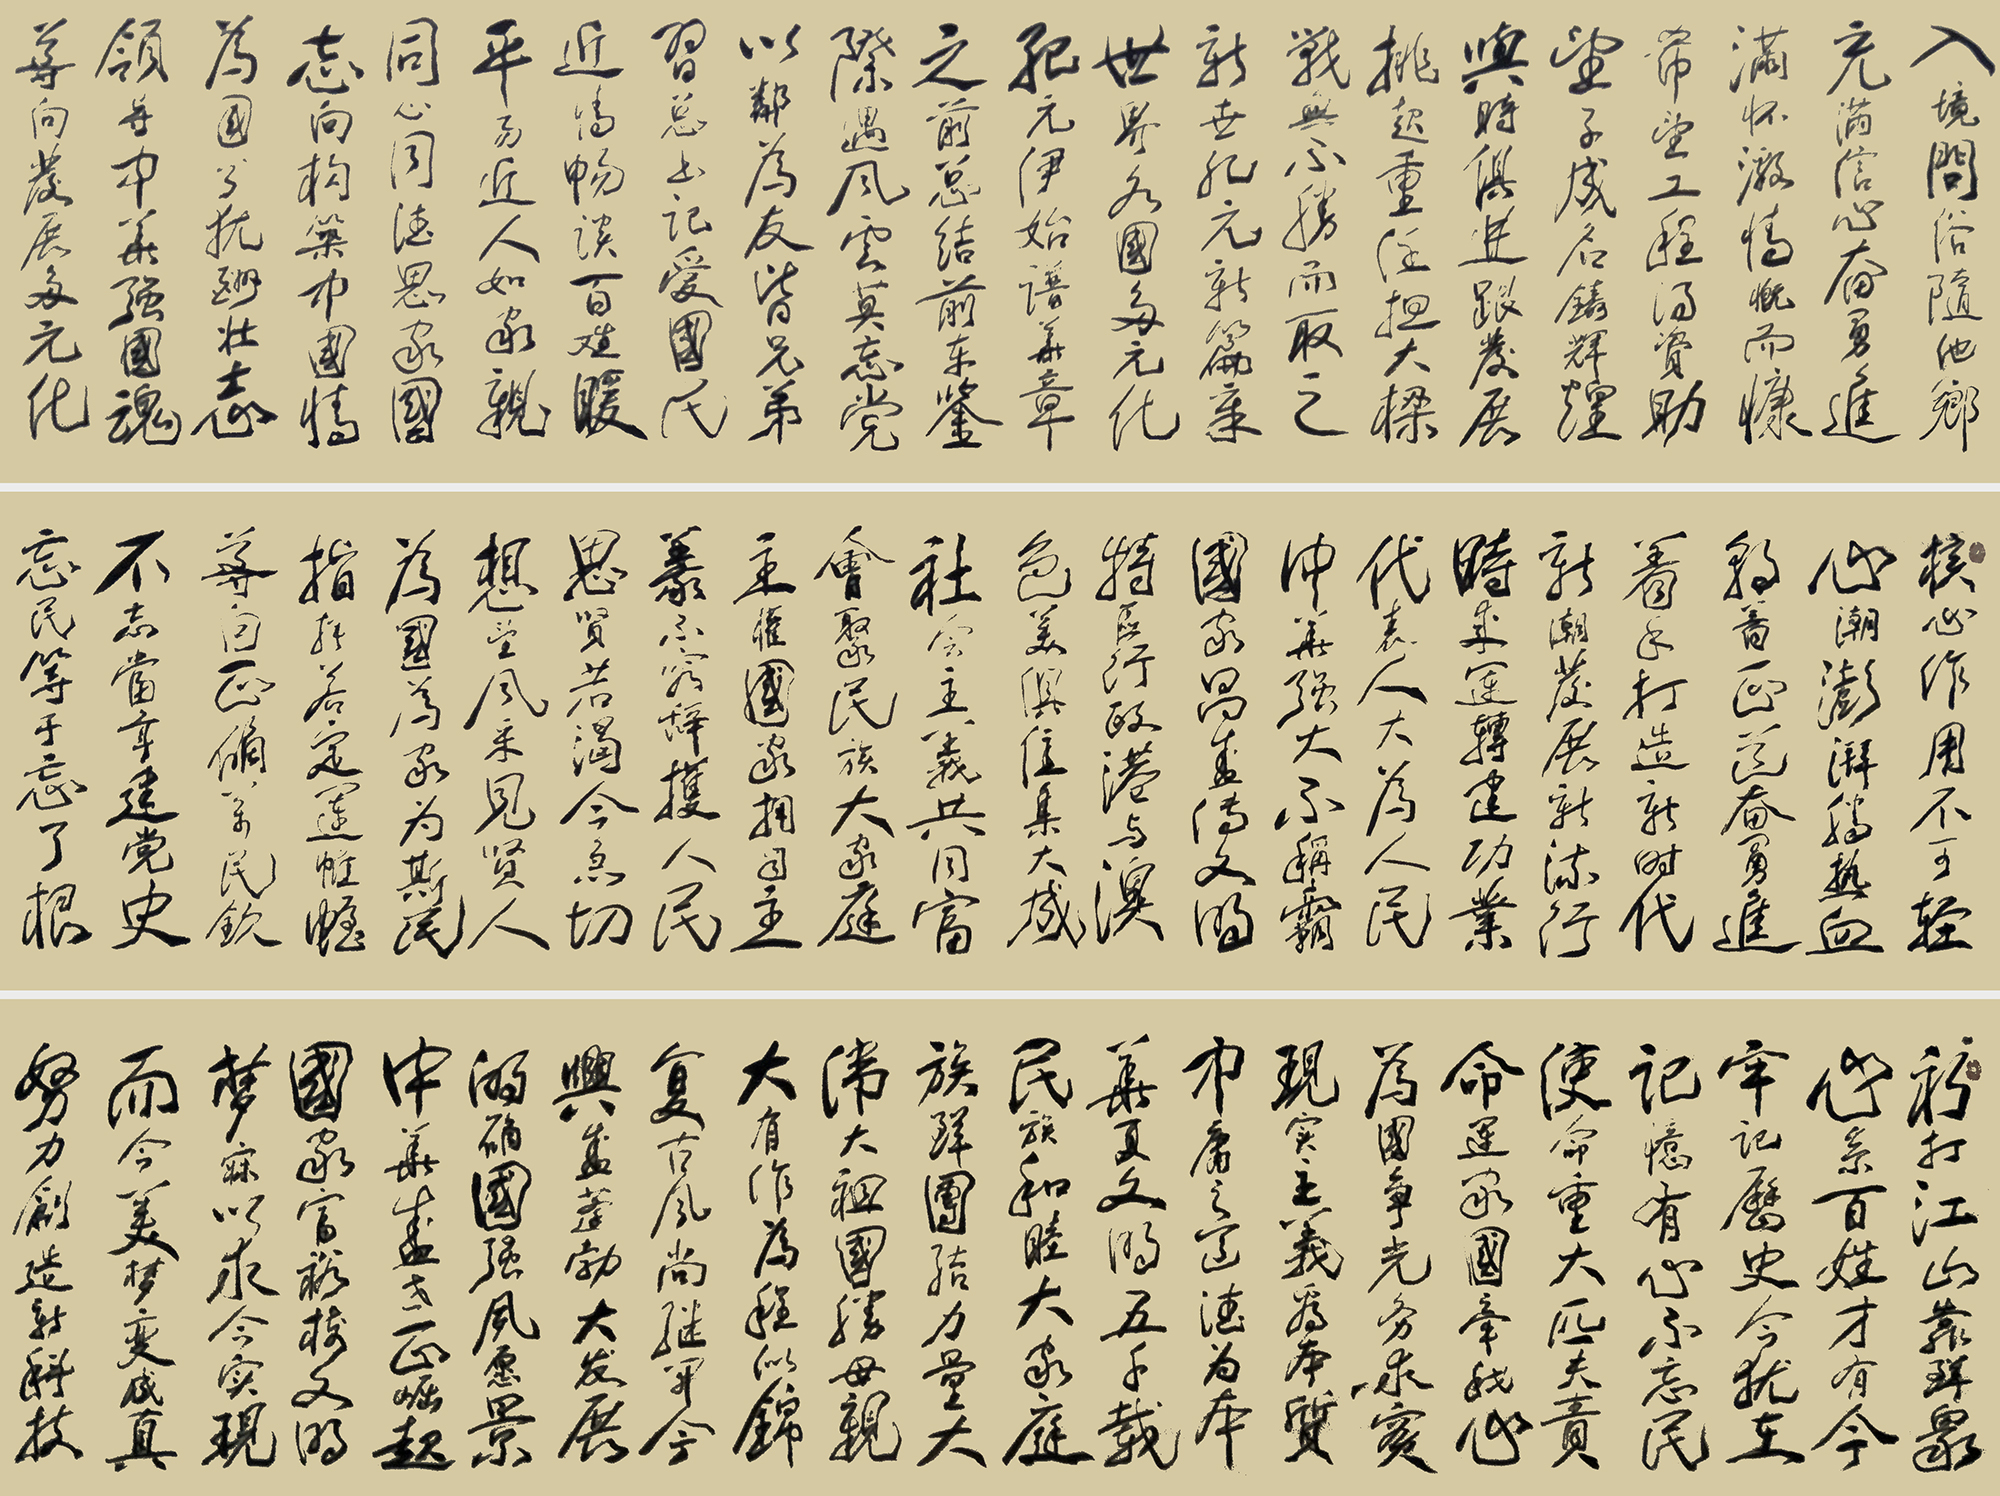 入境問俗隨他鄉
充滿信心奋勇進
滿怀激情慨而慷
帶望工程得資助
望子成名鑄輝煌
與時俱進跟發展
挑起重任担大樑
戰無不勝而取之
新世紀元新篇章
世界各國多元化
紀元伊始譜華章
之前总结前车鉴
際遇风雲莫忘党
以鄰為友皆兄弟
習总书记爱國民
近情畅谈百姓暖
平易近人如家親
同心同德思家國
志向构築中國情
為國分忧酬壮志
領导中華强國魂
导向發展多元化
核心作用不可轻
心潮澎湃腾热血
朝着正道奋勇進
着手打造新时代
新潮發展新流行
時来運轉建功業
代表人大為人民
中華强大不稱霸
國家昌盛传文明
特区行政港与澳
色美俱佳集大成
社会主義共同富
會聚民族大家庭
主權國家拥自主
義不容辞擁人民
思贤若渴今急切
想望风采見贤人
為國為家为斯民
指挥若定運帷幄
导向正确万民钦
不忘當年建党史
忘民等于忘了根
初打江山靠群眾
心系百姓才有今
牢记歷史今犹在
记憶有心不忘民
使命重大匹夫責
命運家國牵我心
為國争光务求实
現实主義為本質
中庸之道德为本
華夏文明五千载
民族和睦大家庭
族群團结力量大
偉大祖國勝母親
大有作為程似錦
复古风尚继至今
興盛蓬勃大发展
的确國强风愿景
中華盛世正崛起
國家富裕树文明
梦寐以求今实現
而今美梦变成真
努力創造新科技